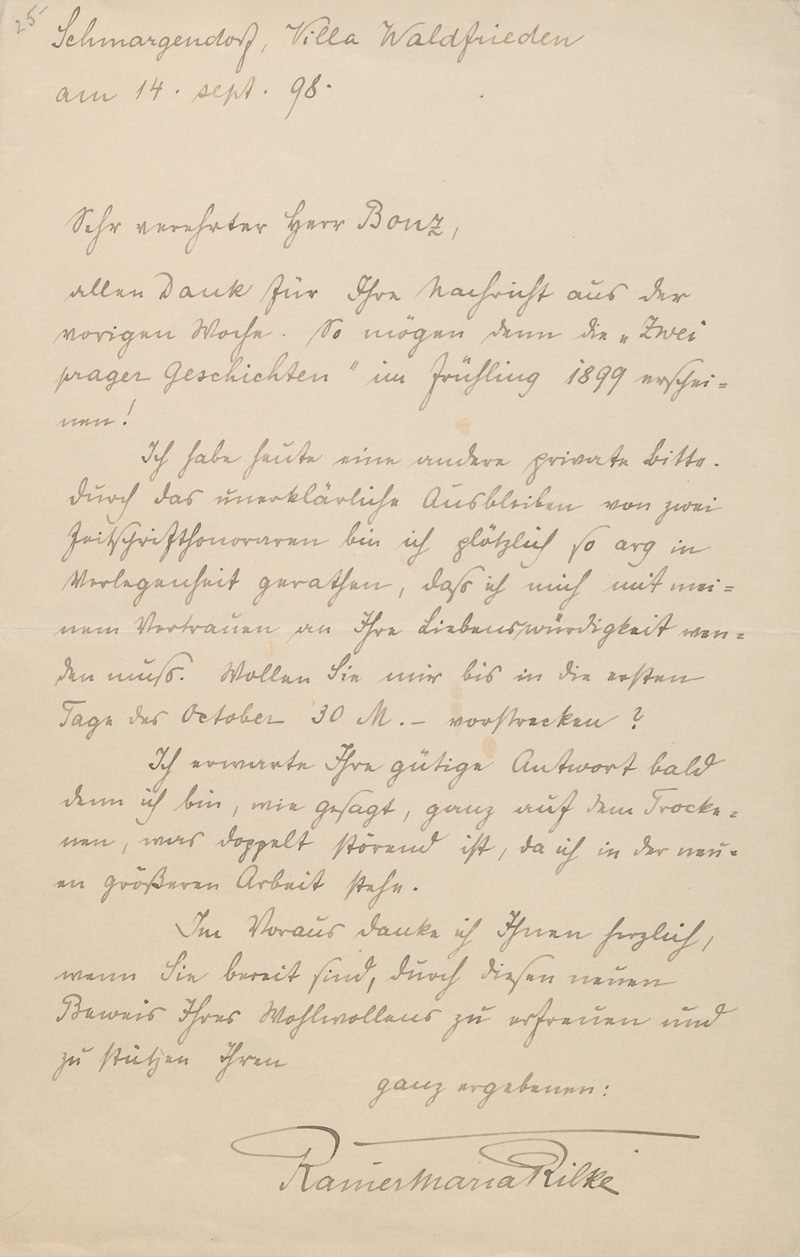 25
Schmargendorf, Villa Waldfrieden
am 14. sept. 98.
Sehr verehrter Herr Bonz,
allen Dank für Ihre Nachricht aus der
vorigen Woche. So mögen denn die „Zwei
prager Geschichten" im Frühling 1899 erschei=
nen!
Ich habe heute eine andere private Bitte.
Durch das unerklärliche Ausbleiben von zwei
Zeitschrifthonoraren bin ich plötzlich so arg in
Verlegenheit gerathen, dass ich mich mit mei=
nem Vertrauen an Ihre Liebenswürdigkeit wen=
den muss. Wollen Sie mir bis in die ersten
Tage des October 30 M.– vorstrecken?
Ich erwarte Ihre gütige Antwort bald
denn ich bin, wie gesagt, ganz auf dem Trocke=
nen, was doppelt störend ist, da ich in der neu=
en größeren Arbeit stehe.
Im Voraus danke ich Ihnen herzlich,
wenn Sie bereit sind, durch diesen neuen
Beweis Ihres Wohlwollens zu erfreuen und
zu stützen Ihren
ganz ergebenen:
RainerMariaRilke